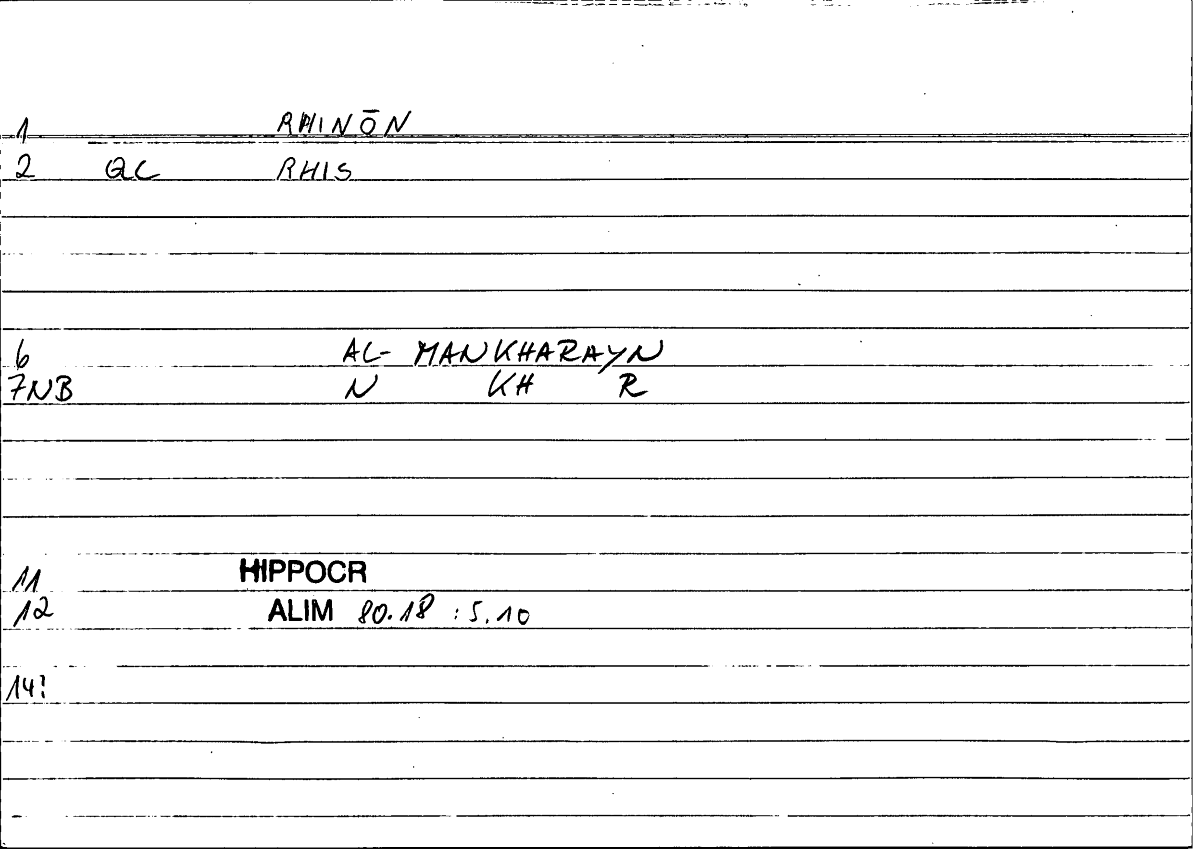 1 RHINŌN
2 QC RHIS
6 AL- MANKHARAYN
7NB N KH R
11 HIPPOCR
12 ALIM 80.18 : 5.10
14!